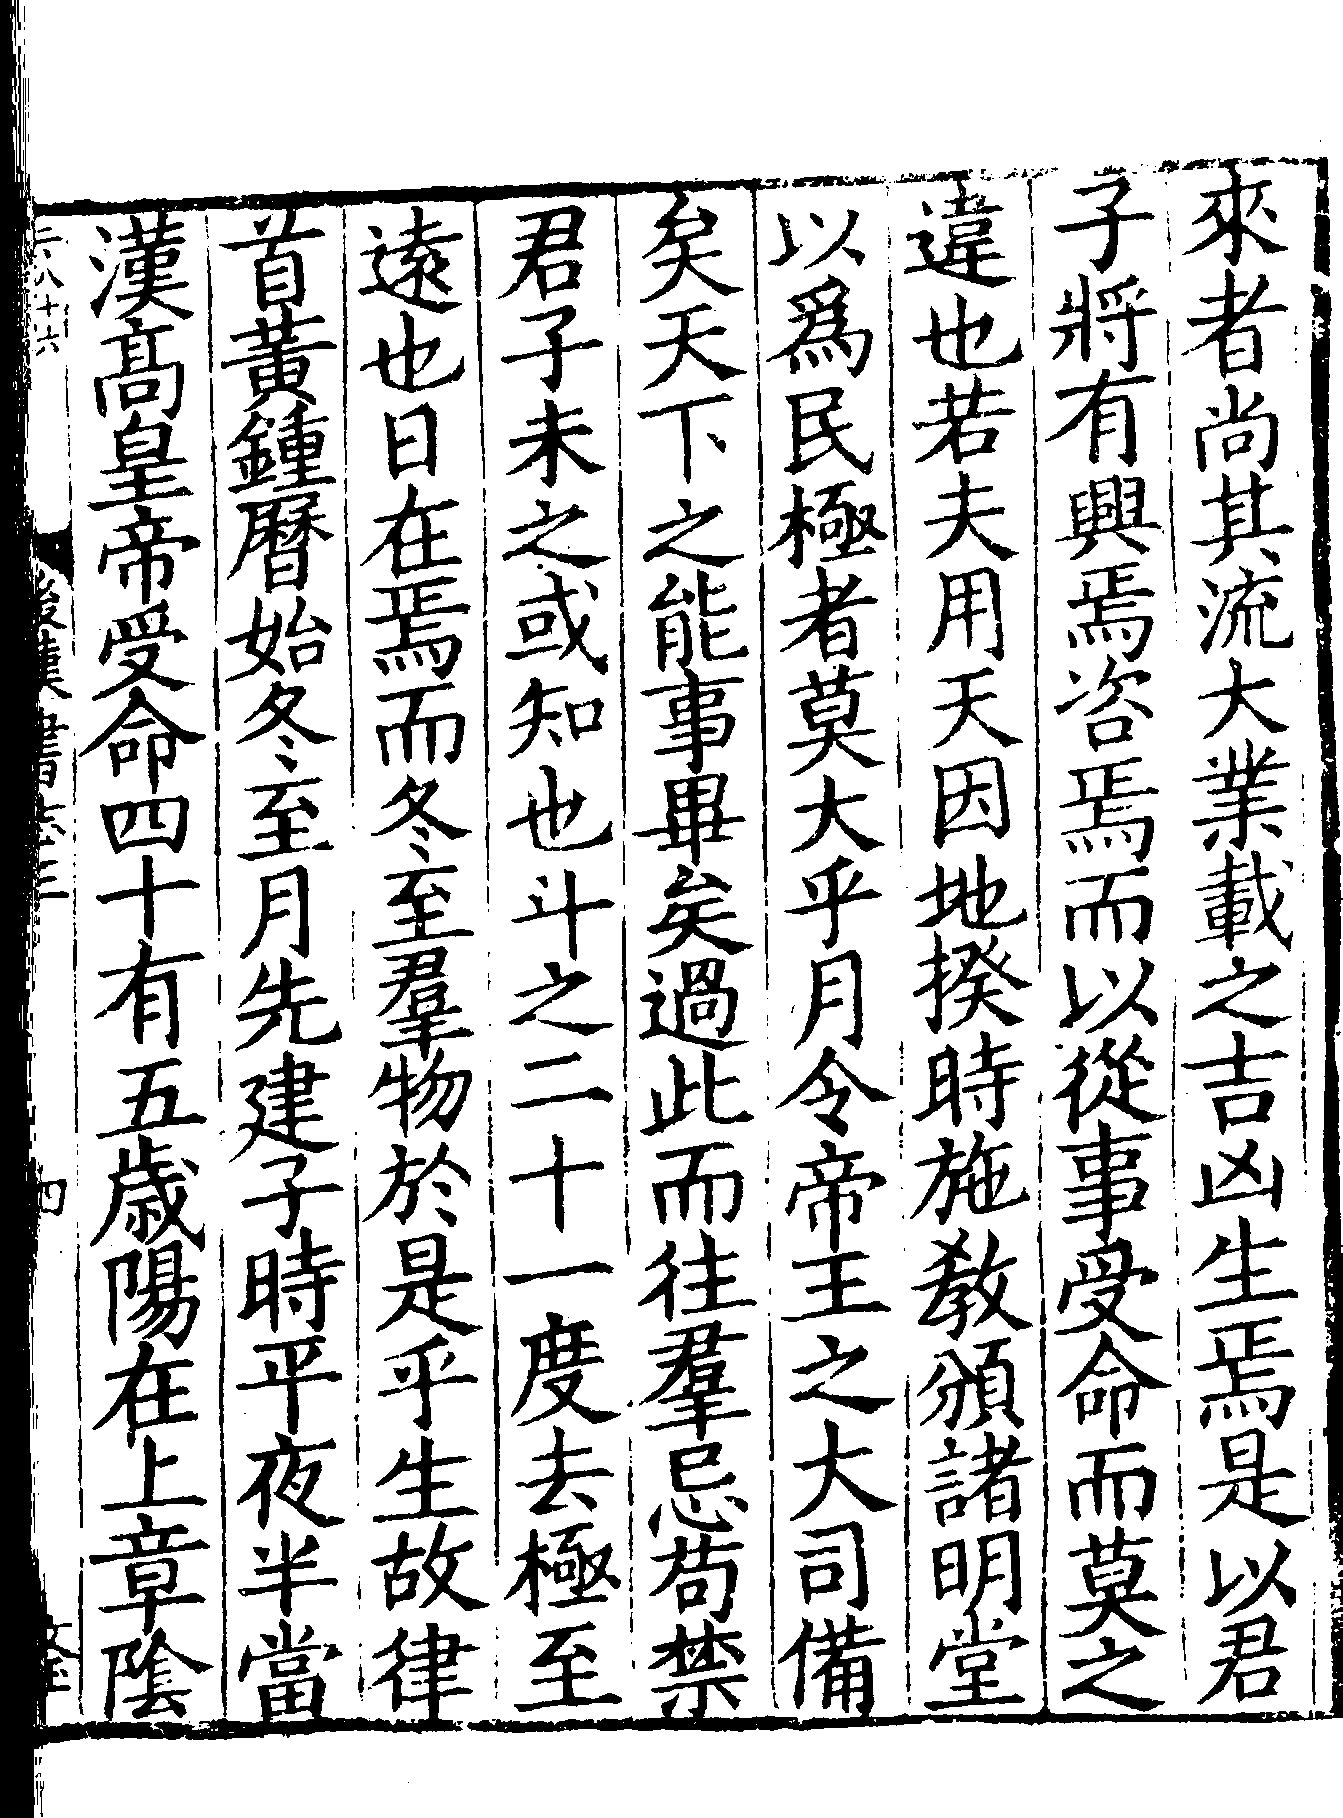 來者尚其流大業載之吉凶生焉是以君
子將有興焉咨焉而以從事受命而莫之
違也若夫用天因地揆時施教頒諸明堂
以爲民極者莫大乎月令帝王之大司備
矣天下之能事畢矣過此而往羣忌苟禁
君子未之或知也斗之二十一度去極至
遠也日在焉而冬至羣物於是乎生故律
首黃鍾曆始冬至月先建子時平夜半當
漢高皇帝受命四十有五歲陽在上章陰
後漢書志三
四